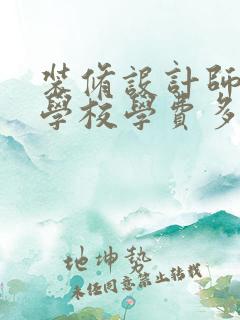 裝脩設計師
學校學費多
地坤勢
未经同意禁止转载